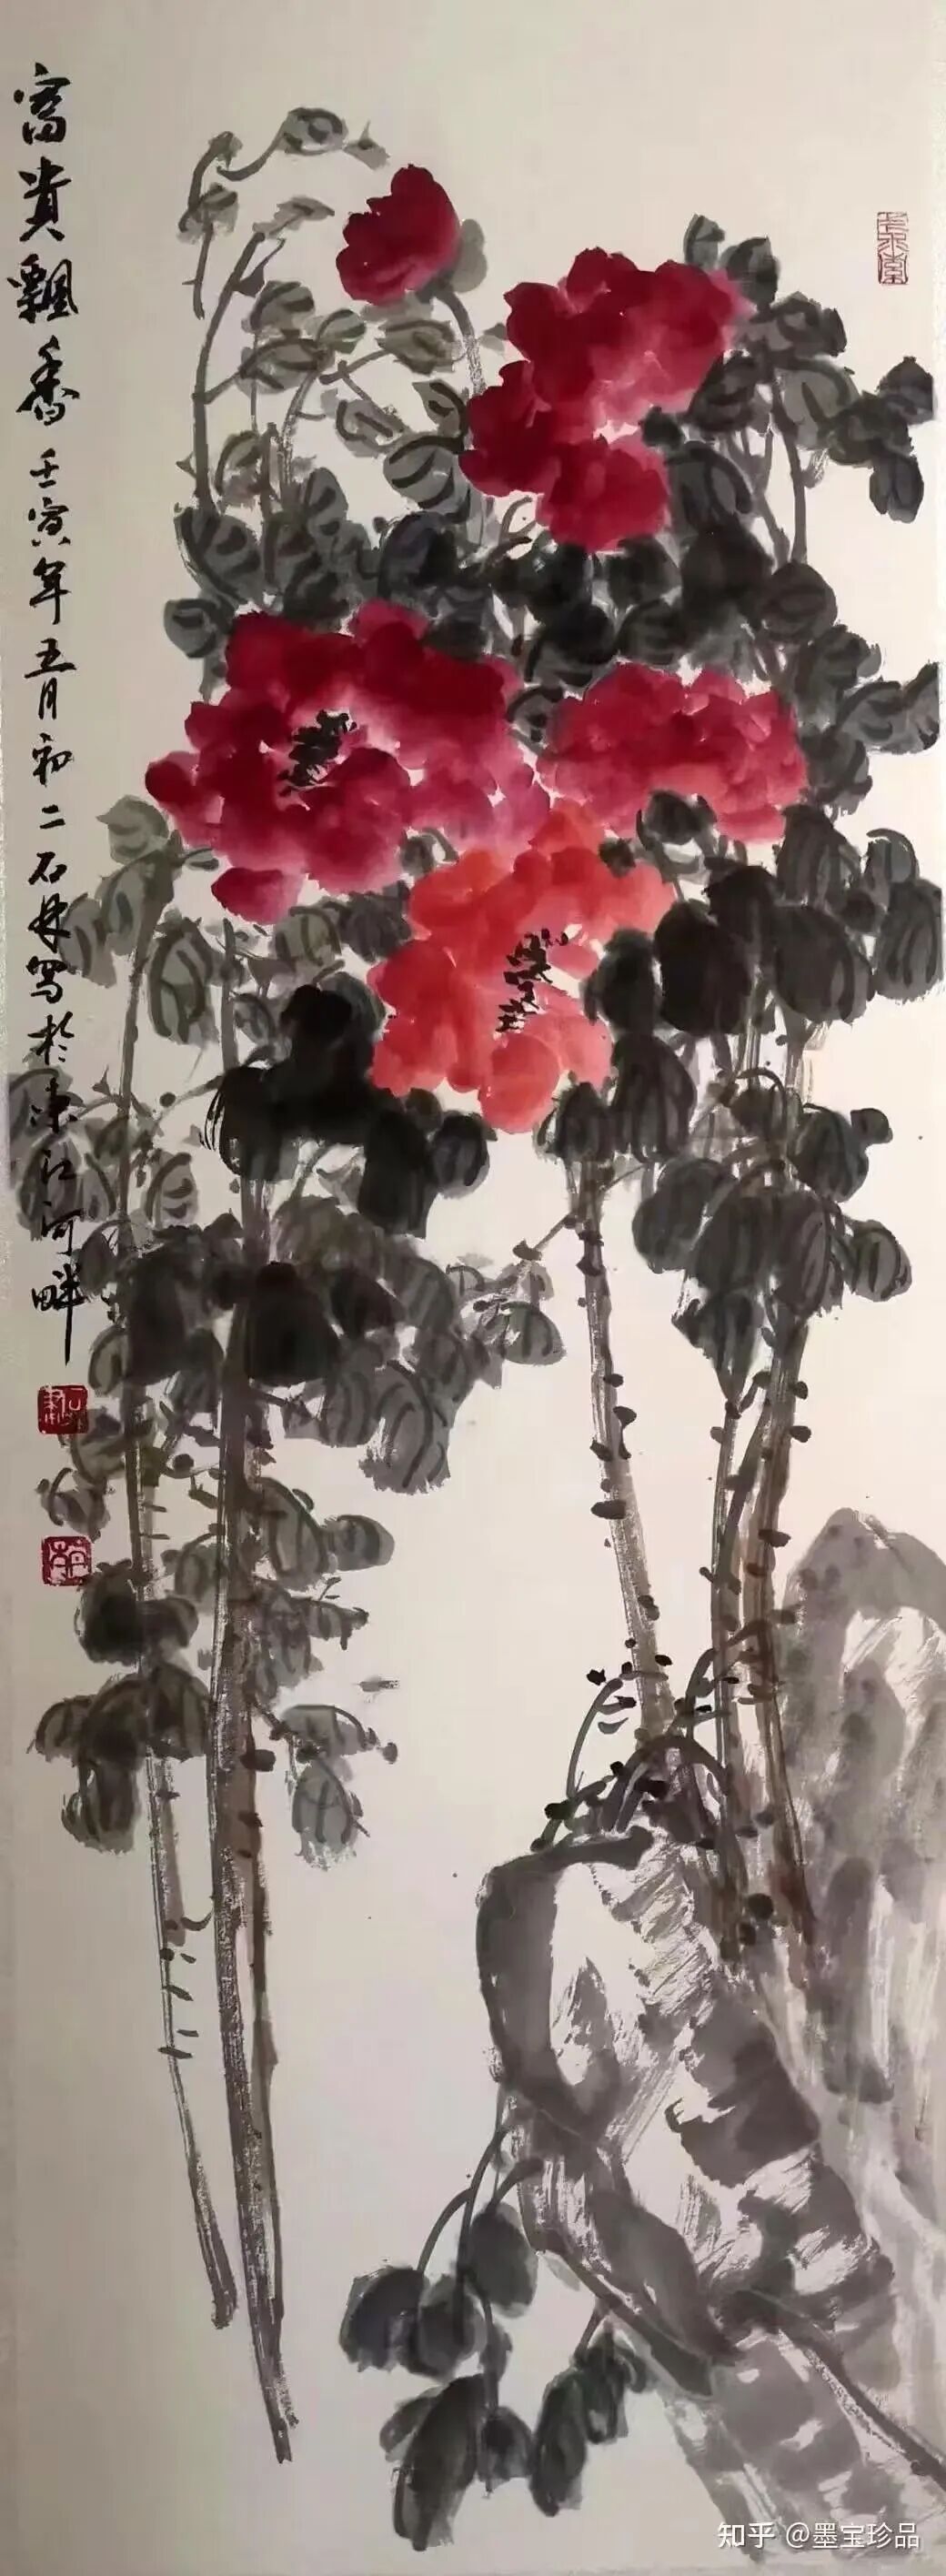 富貴飄香 壬寅年五月初二石林写於東江河畔
知乎 @墨宝珍品